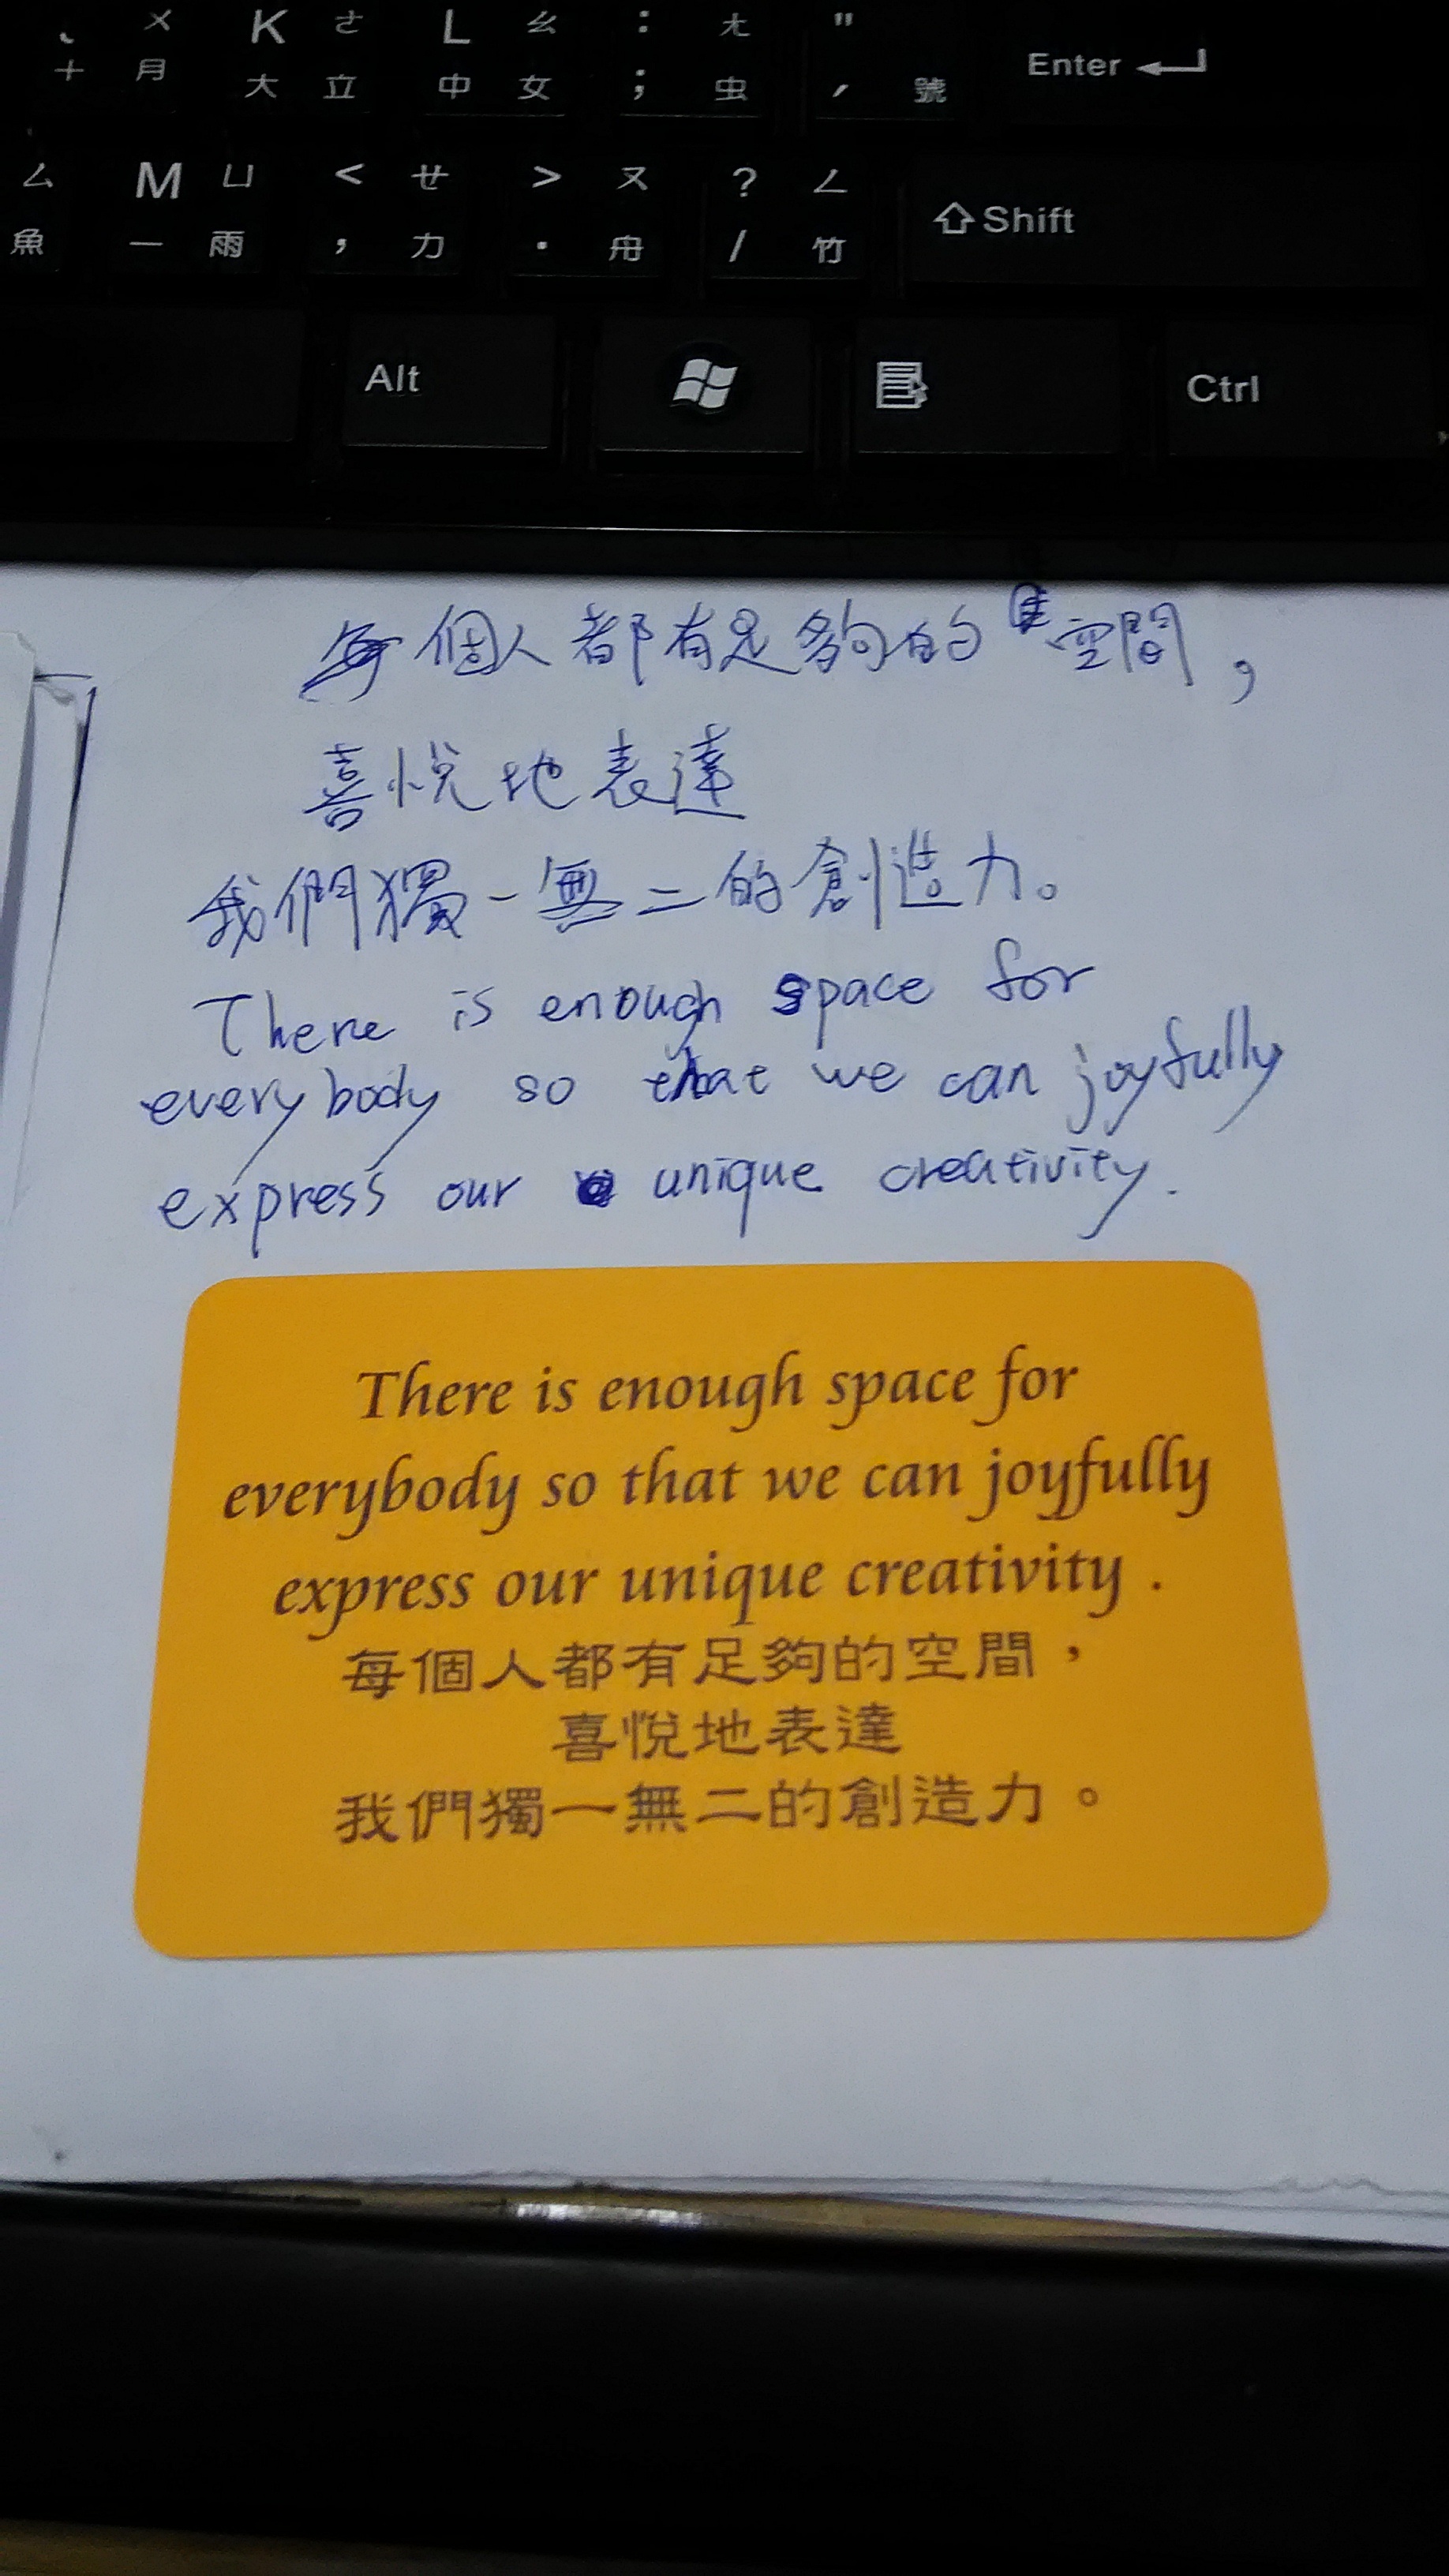 、 ㄨ K ㄜ L ㄠ : ㄤ "
十 月 大 立 中 女 ; 虫 ' 號 Enter
ㄙ M ㄩ < ㄝ > ㄡ ? ㄥ Shift
魚 一 雨 , 力 . 舟 / 竹
Alt Ctrl
每個人都有足夠的空間,
喜悅地表達
我們獨一無二的創造力。
There is enough space for
everybody so that we can joyfully
express our unique creativity.
There is enough space for
everybody so that we can joyfully
express our unique creativity .
每個人都有足夠的空間，
喜悅地表達
我們獨一無二的創造力。